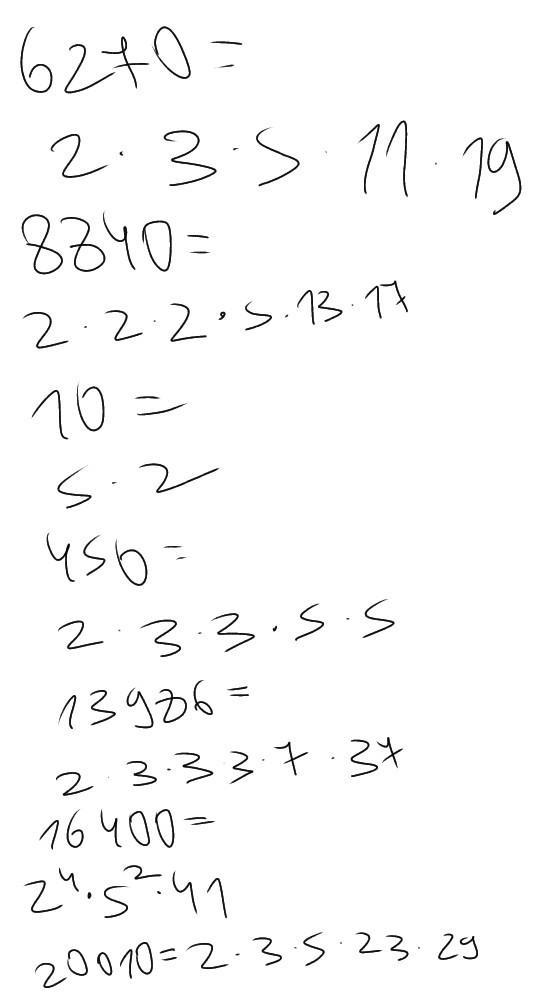 6270=
2·3·5·11·19
8840=
2·2·2·5·13·17
10=
5·2
450=
2·3·3·5·5
13986=
2·3·3 3·7·37
16400=
2⁴·5²·41
20010=2·3·5·23·29